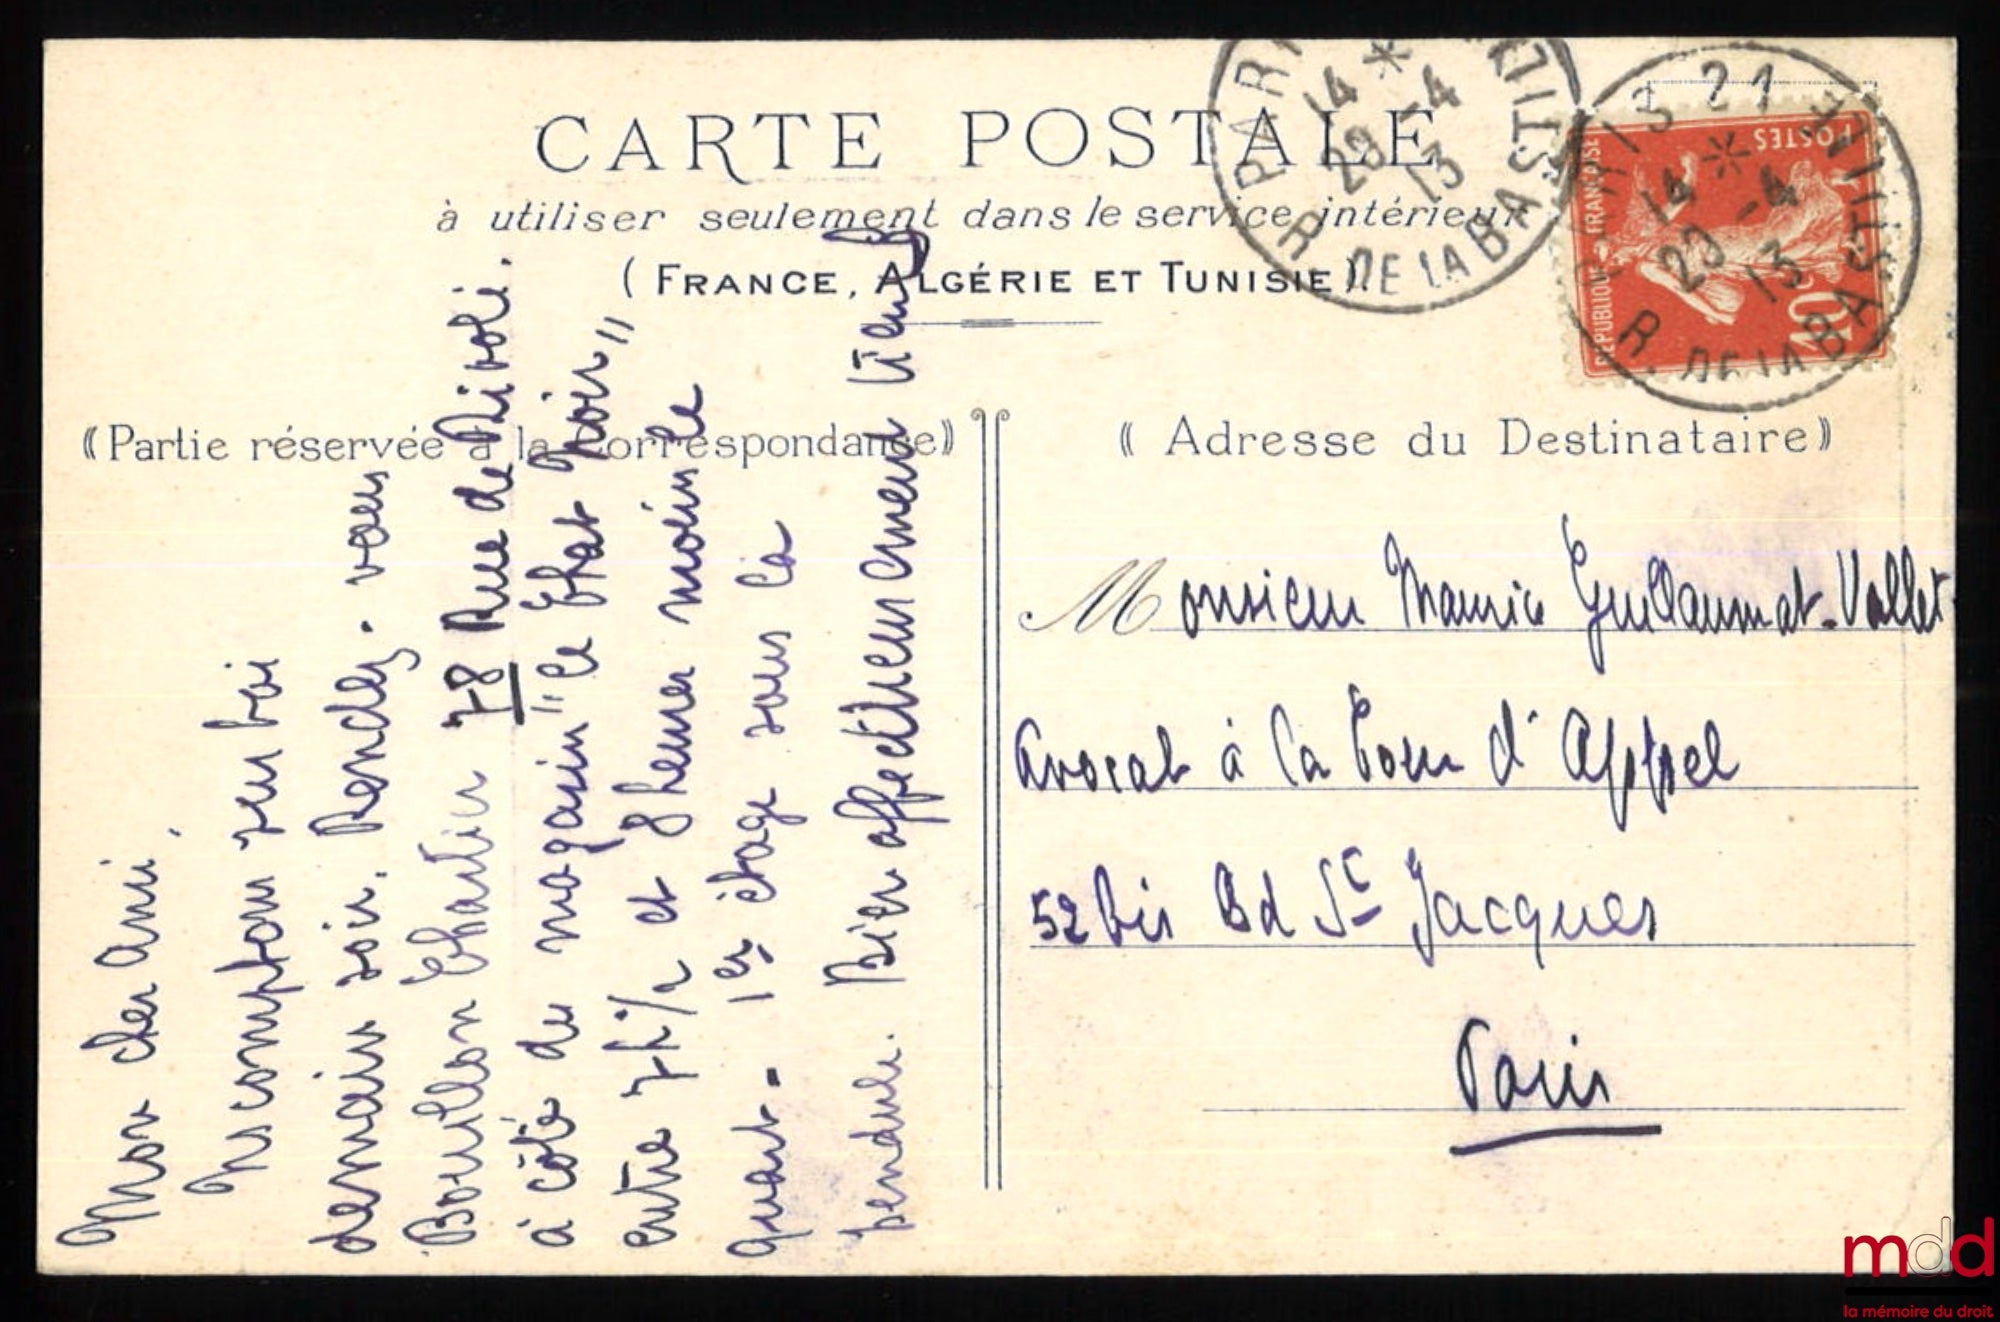 CARTE POSTALE
à utiliser seulement dans le service intérieur
( FRANCE, ALGÉRIE ET TUNISIE ).
⸨Partie réservée à la correspondance⸩
⸨ Adresse du Destinataire⸩
Mon cher ami,
Je compte sur toi
demain soir. Rendez-vous
Bouillon Chartier 78 Rue de Rivoli.
à côté du magasin "Le Chat Noir"
entre 7h ½ et 8 heures moins le
quart - 1er étage sous la
pendule. Bien affectueusement tien
Monsieur Maurice Guillaumat-Vallet
Avocat à la Cour d'Appel
52 bis Bd St Jacques
Paris
PARIS
14 * -4
23 13
R. DE LA BASTILLE
PARIS 21
14 * -4
23 13
R. DE LA BASTILLE
REPUBLIQUE FRANÇAISE
POSTES
10c
mdd
la mémoire du droit